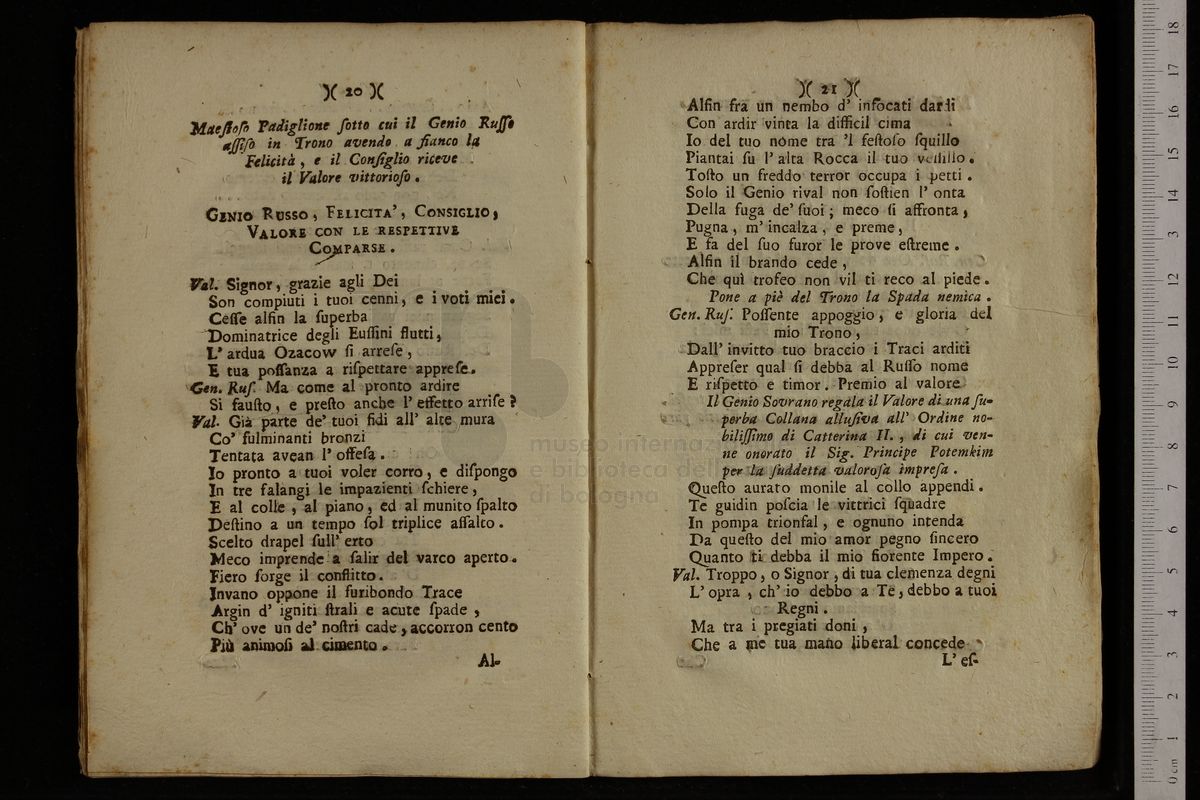 )( 20 )(
Maeſtoſo Padiglione ſotto cui il Genio Ruſſo
aſſiſo in Trono avendo a fianco la
Felicità, e il Conſiglio riceve
il Valore vittorioſo.
GENIO RUSSO, FELICITA', CONSIGLIO,
VALORE CON LE RESPETTIVE
COMPARSE.
Val. Signor, grazie agli Dei
Son compiuti i tuoi cenni, e i voti miei.
Ceſſe alfin la ſuperba
Dominatrice degli Euſſini flutti,
L' ardua Ozacow ſi arreſe,
E tua poſſanza a riſpettare appreſe.
Gen. Ruſ. Ma come al pronto ardire
Si fauſto, e preſto anche l' effetto arriſe?
Val. Già parte de' tuoi fidi all' alte mura
Co' fulminanti bronzi
Tentata avean l' offeſa.
Io pronto a tuoi voler corro, e diſpongo
In tre falangi le impazienti ſchiere,
E al colle, al piano, ed al munito ſpalto
Deſtino a un tempo ſol triplice aſſalto.
Scelto drapel ſull' erto
Meco imprende a ſalir del varco aperto.
Fiero ſorge il conflitto.
Invano oppone il furibondo Trace
Argin d' igniti ſtrali e acute ſpade,
Ch' ove un de' noſtri cade, accorron cento
Più animoſi al cimento.
Al-
)( 21 )(
Alfin fra un nembo d' infocati dardi
Con ardir vinta la difficil cima
Io del tuo nome tra 'l feſtoſo ſquillo
Piantai ſu l' alta Rocca il tuo veſſillo.
Toſto un freddo terror occupa i petti.
Solo il Genio rival non ſoſtien l' onta
Della fuga de' ſuoi; meco ſi affronta,
Pugna, m' incalza, e preme,
E fa del ſuo furor le prove eſtreme.
Alfin il brando cede,
Che quì trofeo non vil ti reco al piede.
Pone a piè del Trono la Spada nemica.
Gen. Ruſ. Poſſente appoggio, e gloria del
mio Trono,
Dall' invitto tuo braccio i Traci arditi
Appreſer qual ſi debba al Ruſſo nome
E riſpetto e timor. Premio al valore
Il Genio Sovrano regala il Valore di una ſu-
perba Collana alluſiva all' Ordine no-
biliſſimo di Catterina II., di cui ven-
ne onorato il Sig. Principe Potemkim
per la ſuddetta valoroſa impreſa.
Queſto aurato monile al collo appendi.
Te guidin poſcia le vittrici ſquadre
In pompa trionfal, e ognuno intenda
Da queſto del mio amor pegno ſincero
Quanto ti debba il mio fiorente Impero.
Val. Troppo, o Signor, di tua clemenza degni
L' opra, ch' io debbo a Te, debbo a tuoi
Regni.
Ma tra i pregiati doni,
Che a me tua mano liberal concede
L' eſ-
museo internaz
e biblioteca del
di bologna
0 cm 1 2 3 4 5 6 7 8 9 10 11 12 13 14 15 16 17 18